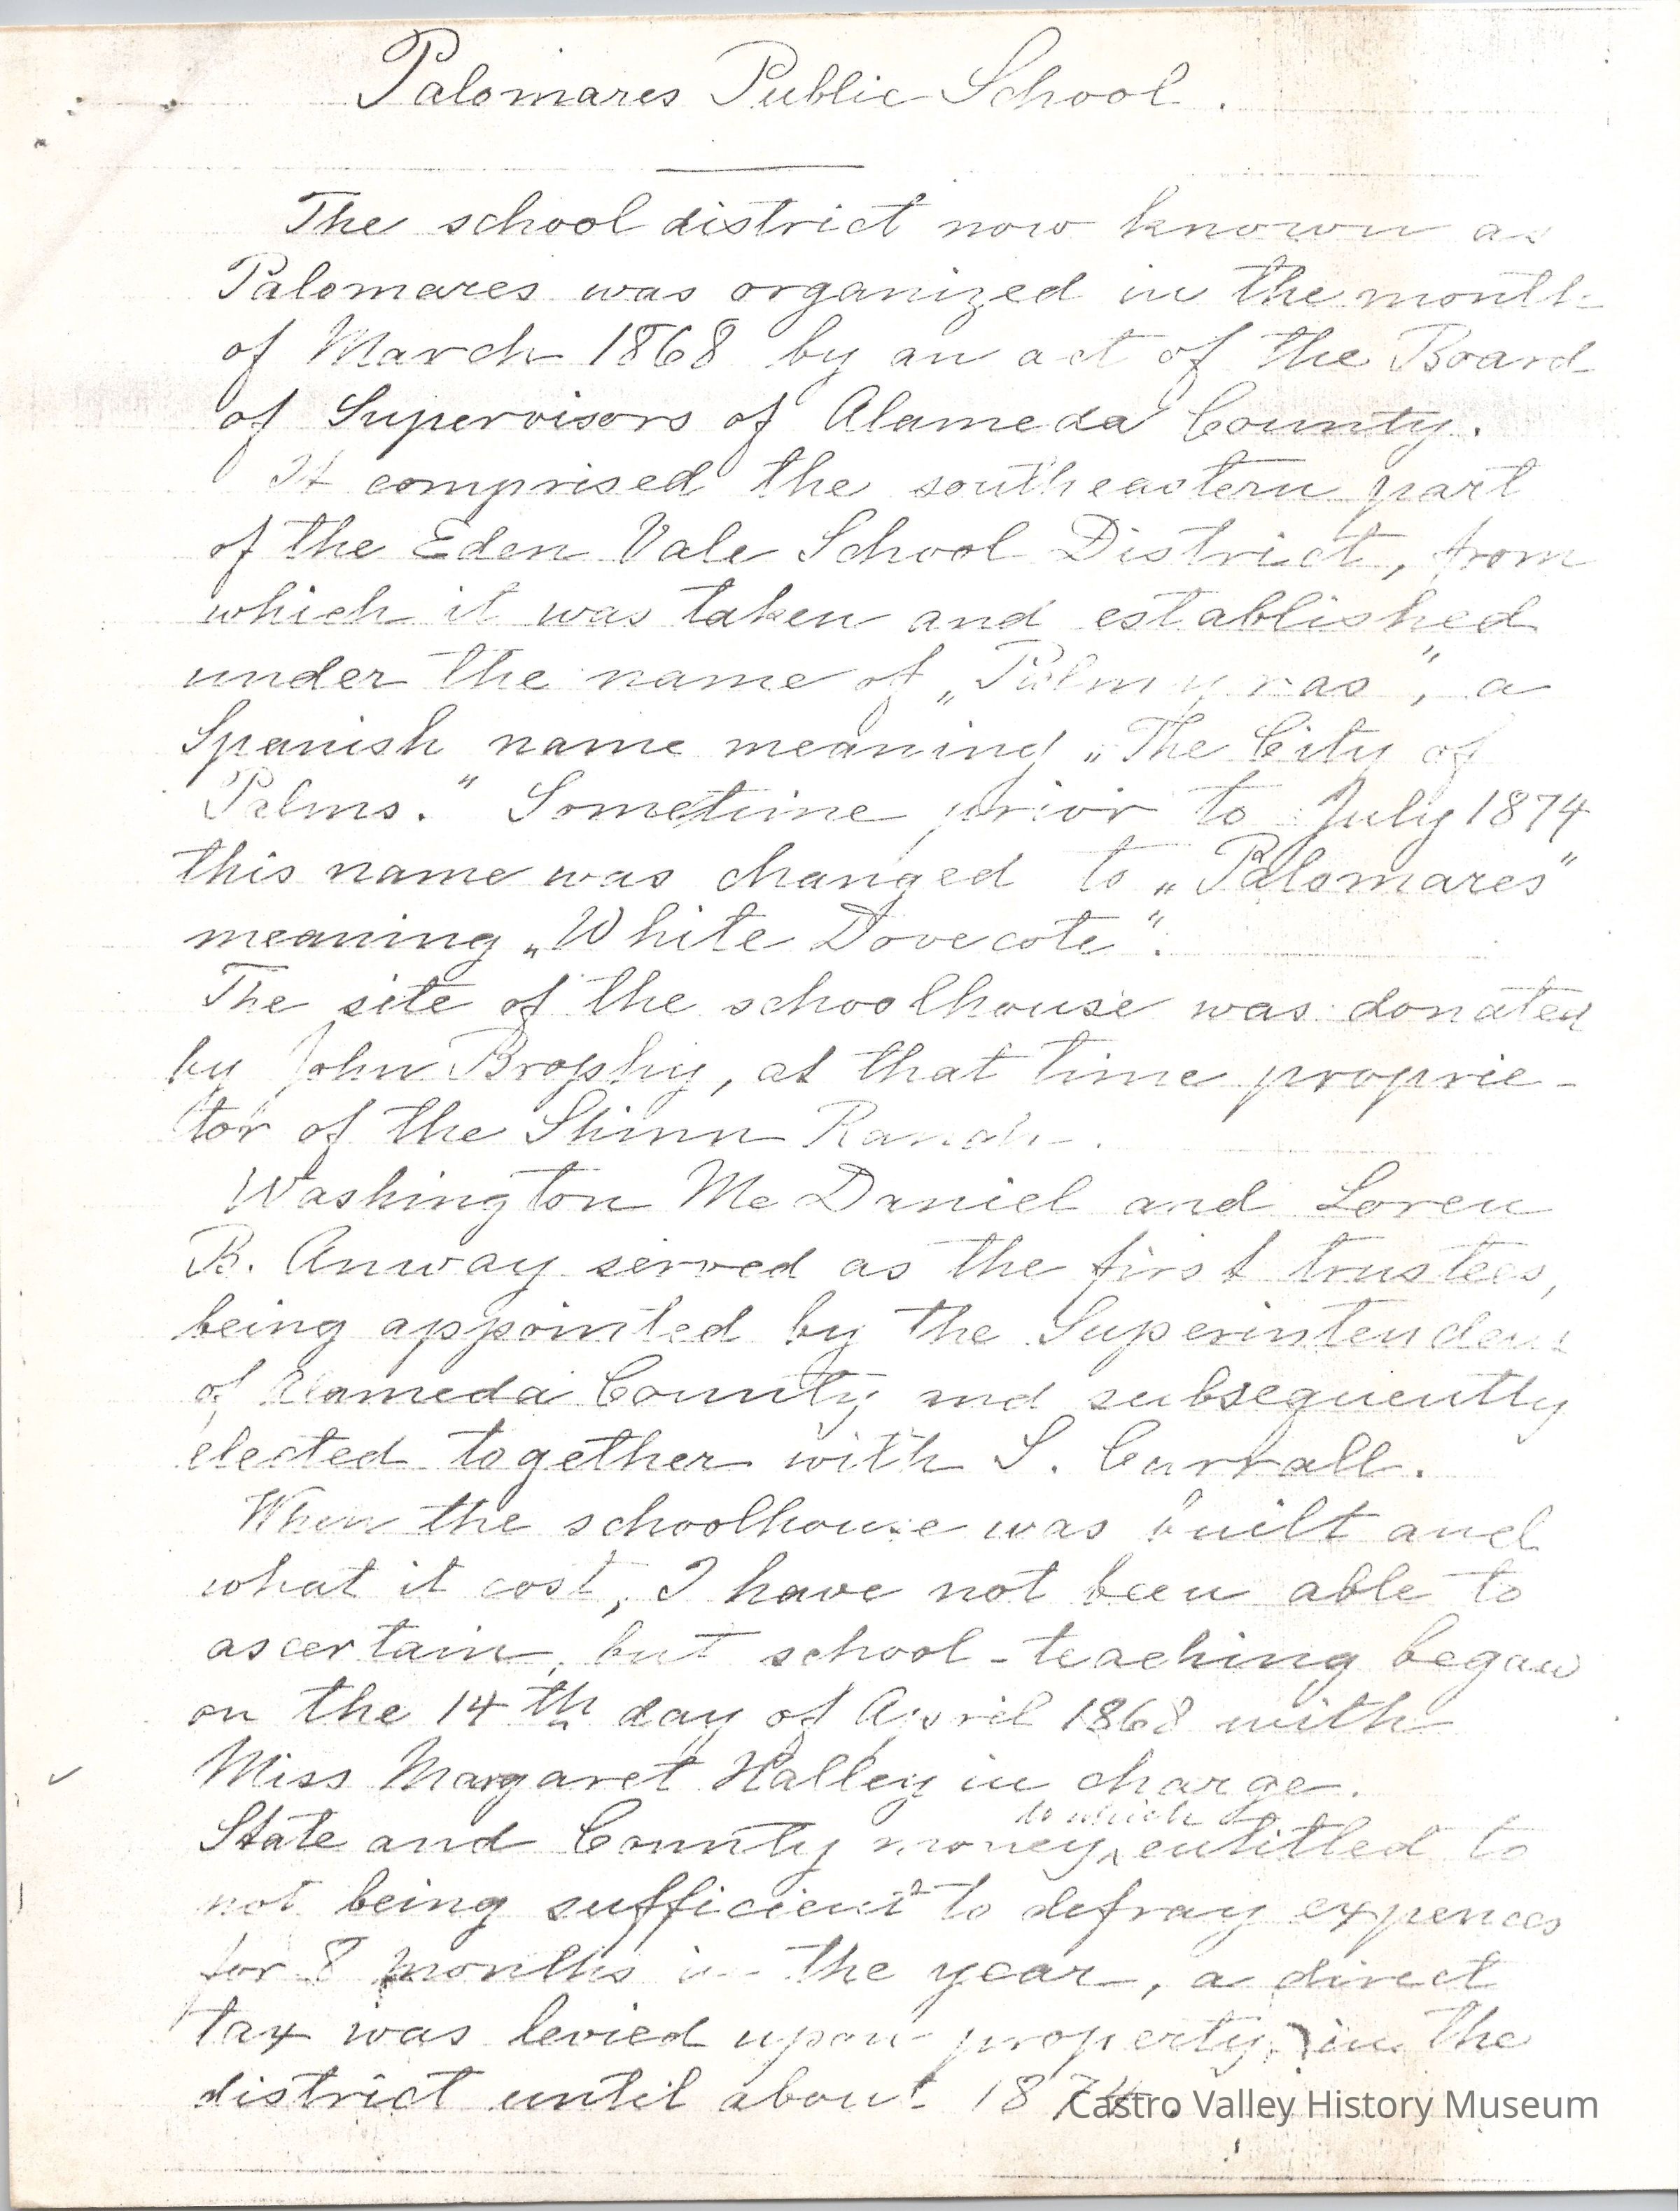 Palomares Public School.
The school district now known as
Palomares was organized in the month
of March 1868 by an act of the Board
of Supervisors of Alameda County.
It comprised the southeastern part
of the Eden Vale School District, from
which it was taken and established
under the name of „Palmyras", a
Spanish name meaning „The City of
Palms." Sometime prior to July 1874
this name was changed to „Palomares"
meaning „White Dovecote".
The site of the schoolhouse was donated
by John Brophy, at that time proprie-
tor of the Stinn Ranch.
Washington Mc Daniel and Loren
B. Anway served as the first trustees,
being appointed by the Superintendent
of Alameda County and subsequently
elected together with S. Carrall.
When the schoolhouse was built and
what it cost, I have not been able to
ascertain, but school-teaching began
on the 14th day of April 1868 with
Miss Margaret Halley in charge.
to which
State and County money entitled to
not being sufficient to defray expences
for 8 months in the year, a direct
tax was levied upon property in the
district until about 18
Castro Valley History Museum